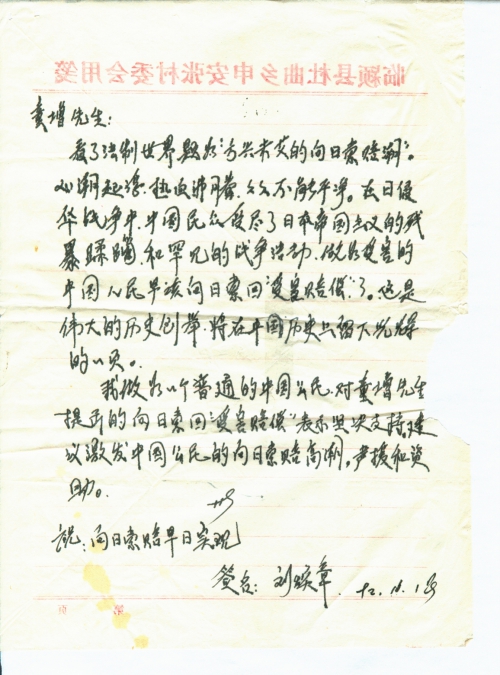 临颍县杜曲乡申安张村委会用笺
童增先生:
看了法制世界题为“方兴未艾的向日索赔潮”。
心潮起浮,热血沸腾,久久不能平净。在日侵
华战争中,中国民众受尽了日本帝国主义的残
暴蹂躏和罪恶的战争活动,做为受害的
中国人民早该向日索回“受害赔偿”了。这是
伟大的历史创举,将在中国历史上留下光辉
的一页。
我做为一个普通的中国公民,对童增先生
提出的向日索回“受害赔偿”表示坚决支持,建
议激发中国公民的向日索赔高潮,声援和资
助。
此
祝:向日索赔早日实现
签名:刘焕章
第 页